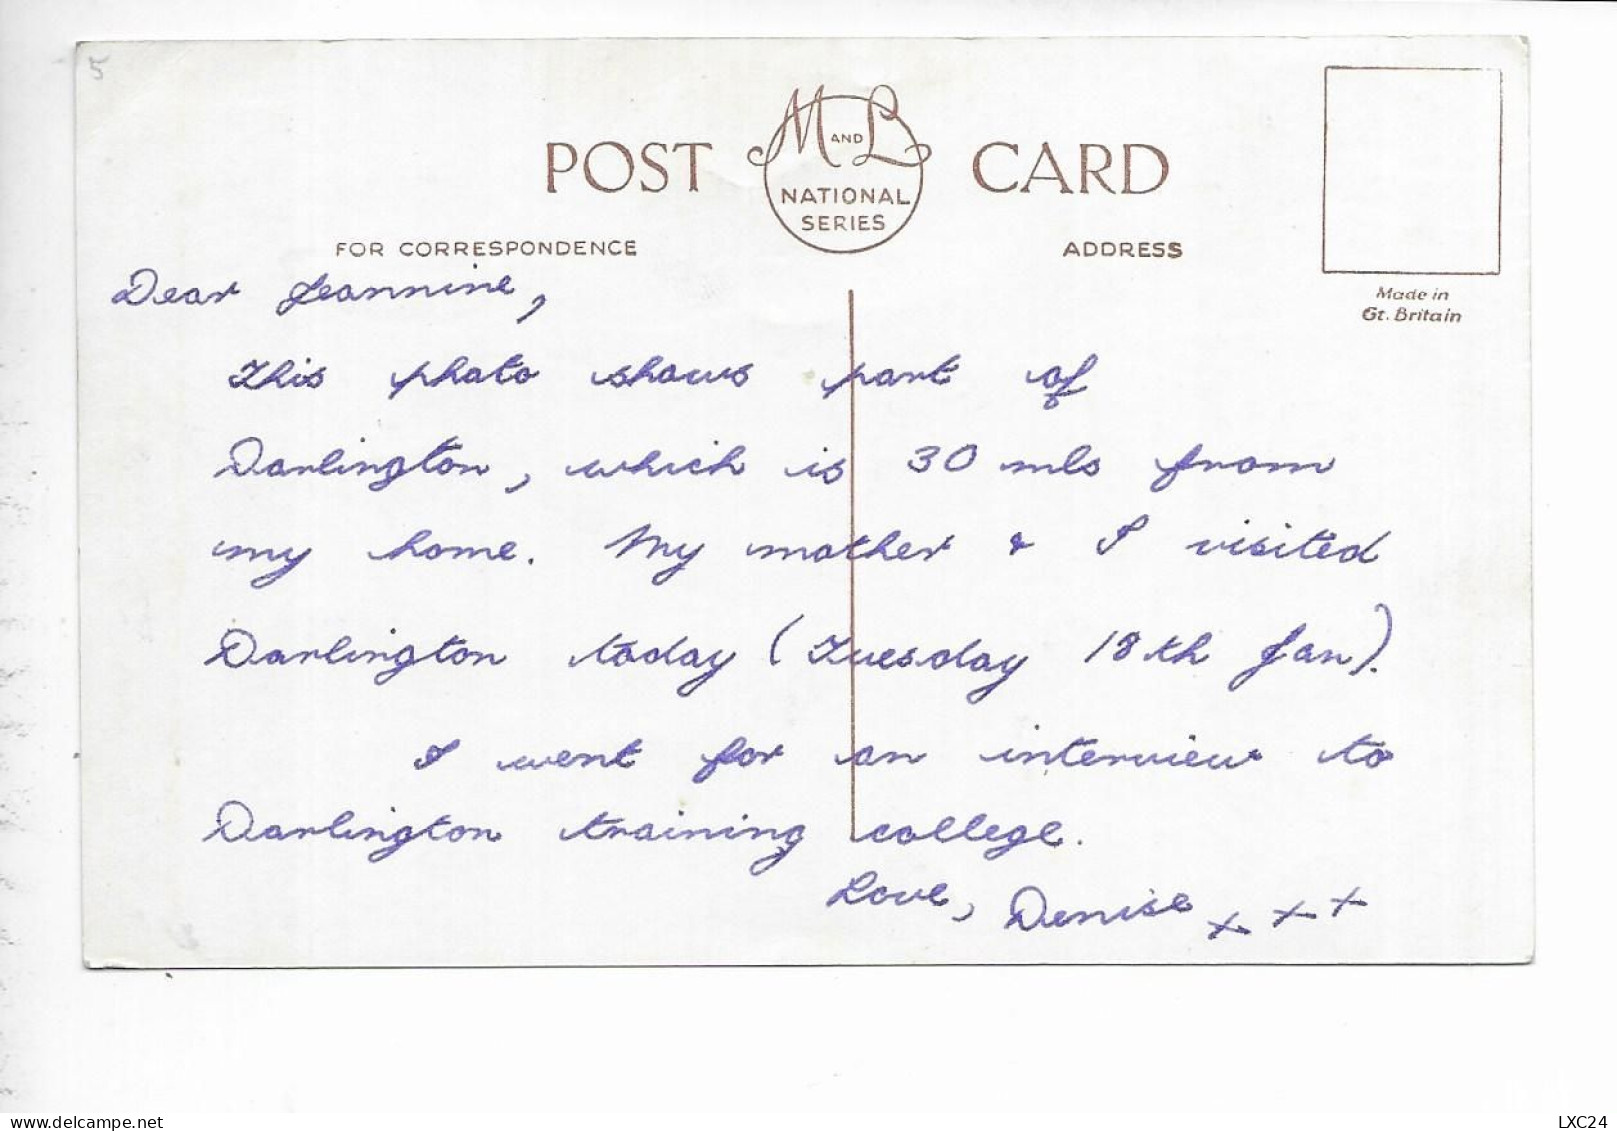 5
POST M AND L CARD
NATIONAL
SERIES
FOR CORRESPONDENCE ADDRESS
Made in
Gt. Britain
Dear Jeannine,
This photo shows part of
Darlington, which is 30 mls from
my home. My mother & I visited
Darlington today (Tuesday 18th Jan).
I went for an interview to
Darlington training college.
Love, Denise x x x
www.delcampe.net
LXC24